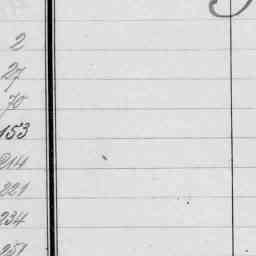 2
27
70
153
214
221
234
251